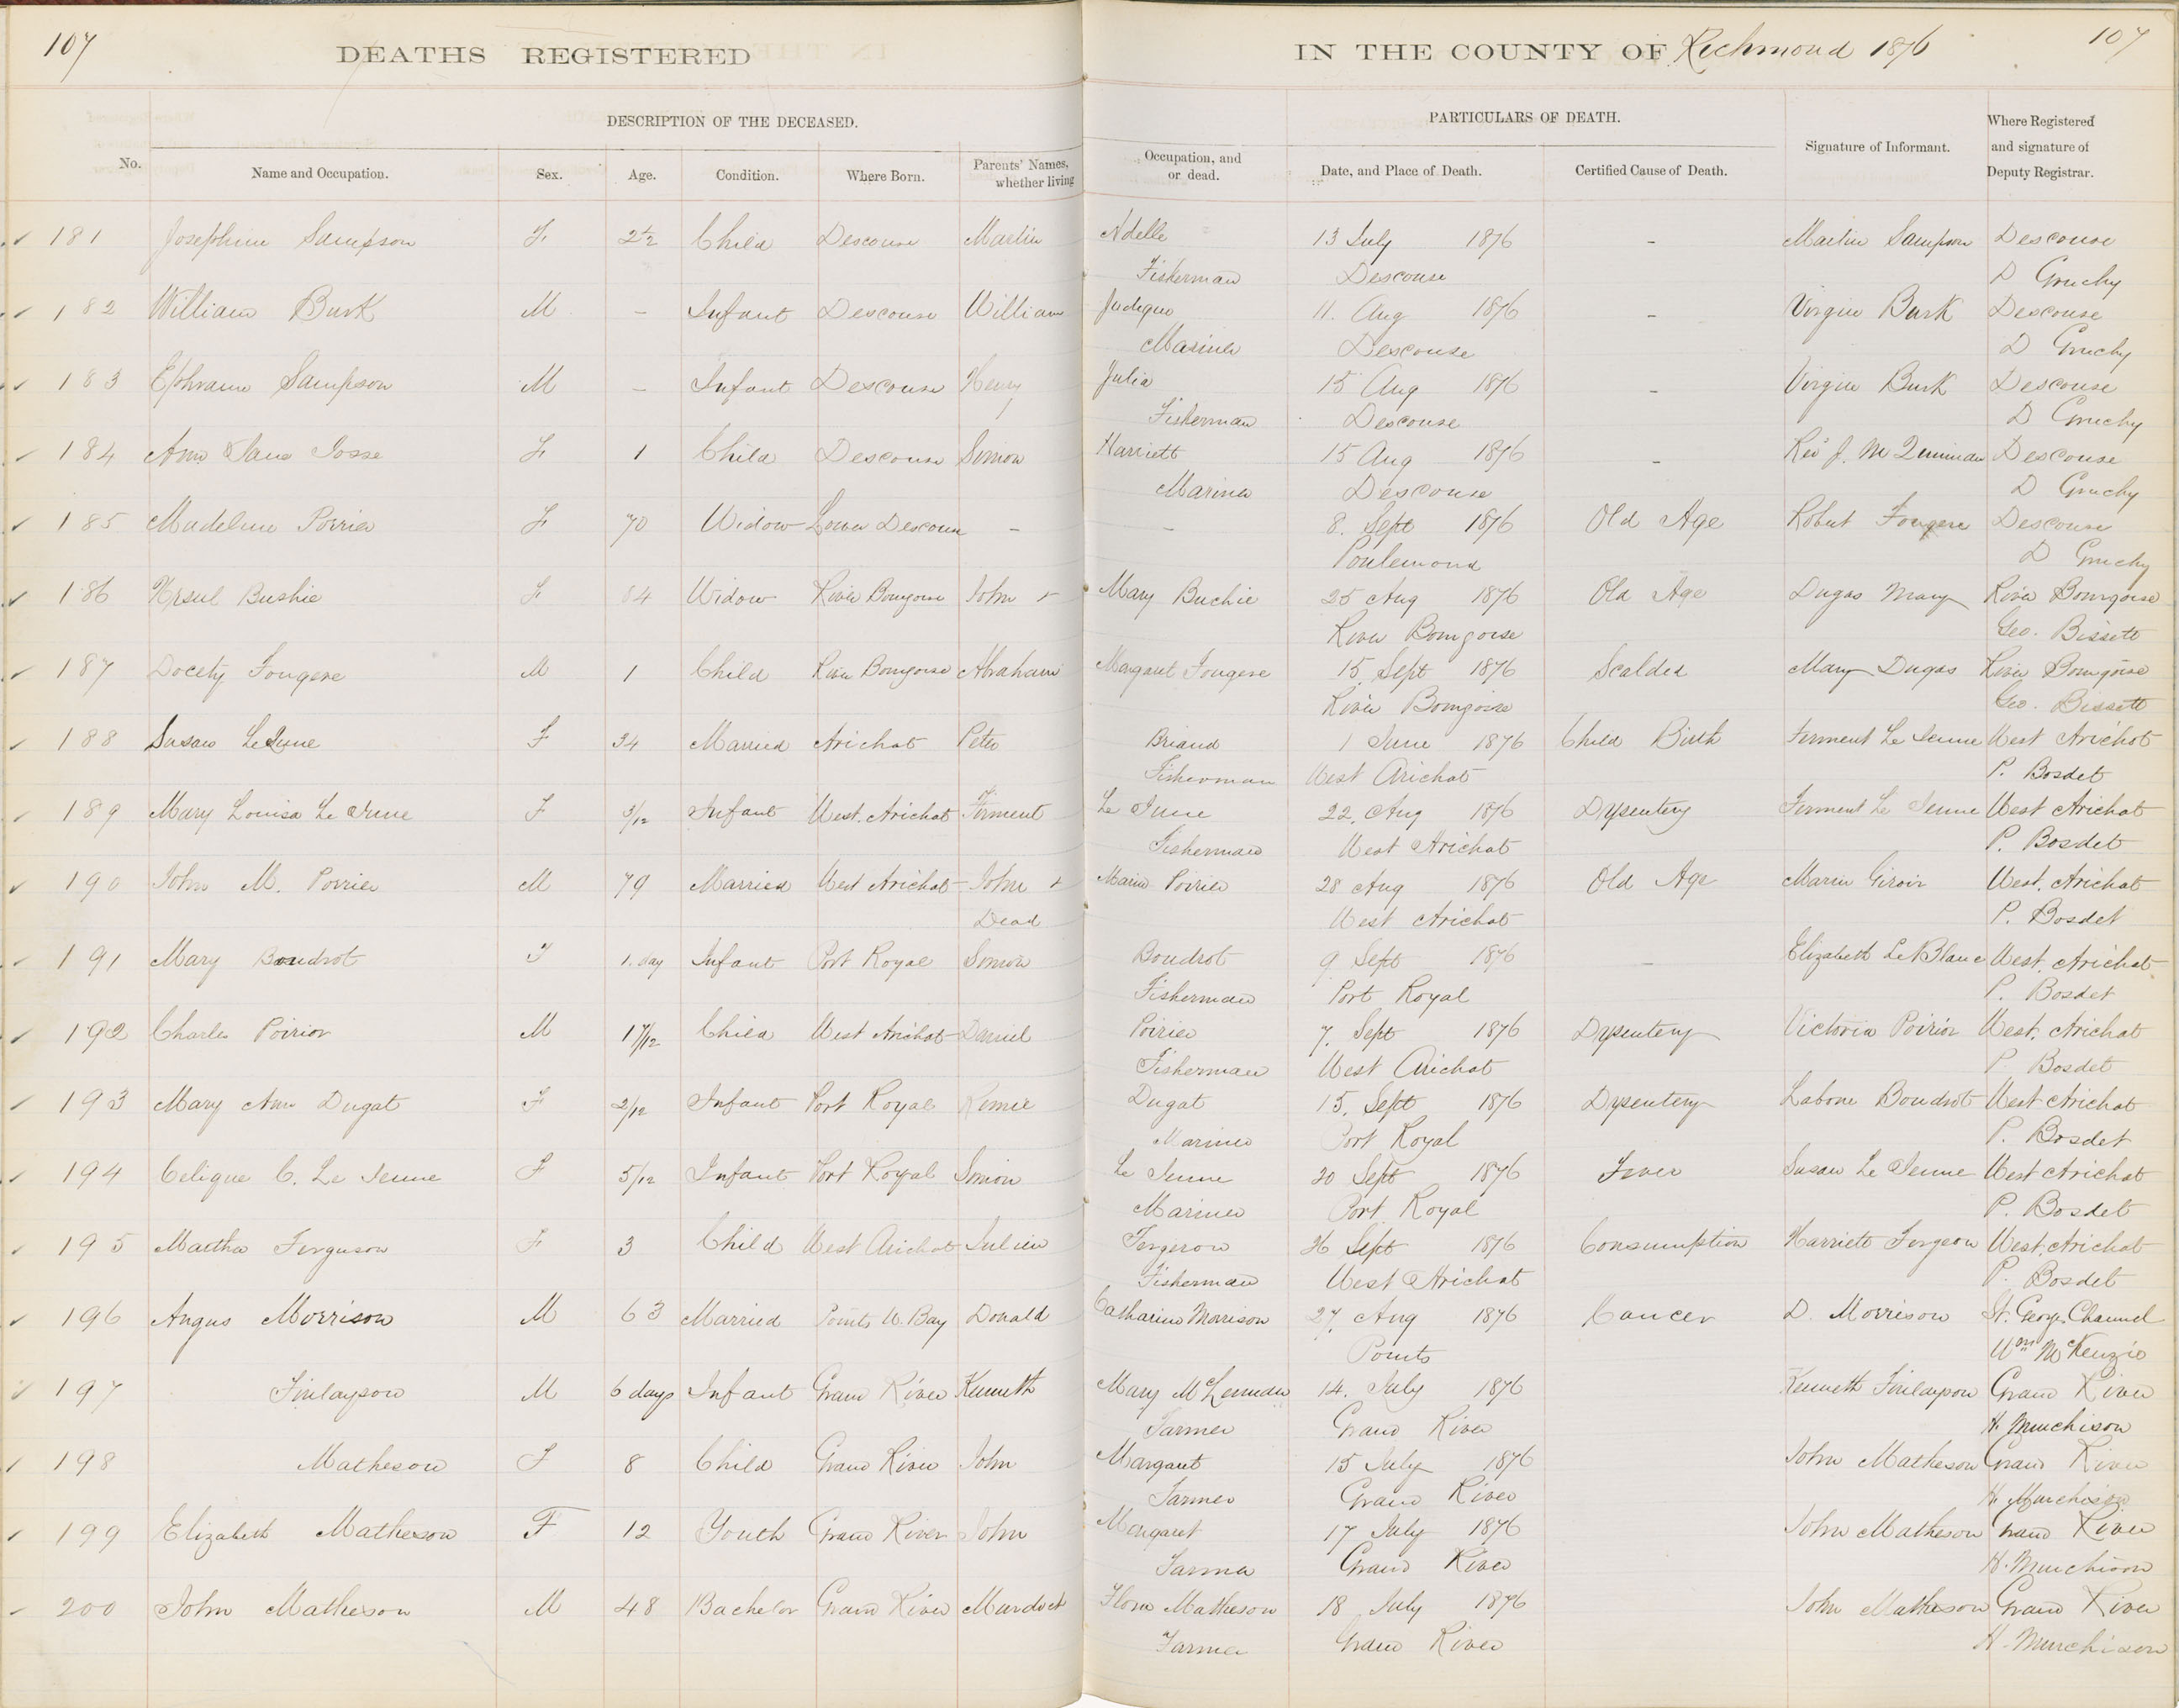 107
DEATHS REGISTERED
IN THE COUNTY OF Richmond 1876
107
DESCRIPTION OF THE DECEASED.
PARTICULARS OF DEATH.
No. Name and Occupation. Sex. Age. Condition. Where Born. Parents' Names, whether living
Occupation, and or dead. Date, and Place of Death. Certified Cause of Death. Signature of Informant. Where Registered and signature of Deputy Registrar.
181 Josephine Sampson F 2½ Child Descouse Martin Adelle 13 July 1876 - Martin Sampson Descouse
Fisherman Descouse D Gruchy
182 William Burk M - Infant Descouse William Judique 11. Aug 1876 - Virgin Burk Descouse
Mariner Descouse D Gruchy
183 Ephraim Sampson M - Infant Descouse Henry Julia 15 Aug 1876 - Virgin Burk Descouse
Fisherman Descouse D Gruchy
184 Ann Jane Josse F 1 Child Descouse Simon Harriett 15 Aug 1876 - Rev J. M Quinnan Descouse
Mariner Descouse D Gruchy
185 Madeline Poirier F 70 Widow Lower Descouse - - 8. Sept 1876 Old Age Robert Fougere Descouse
Poulemond D Gruchy
186 Ursul Bushie F 84 Widow River Bourgoise John + Mary Buchie 25 Aug 1876 Old Age Dugas Mary River Bourgoise
River Bourgoise Geo. Bissett
187 Docety Fougere M 1 Child River Bourgoise Abraham Margaret Fougere 15 Sept 1876 Scalded Mary Dugas River Bourgoise
River Bourgoise Geo. Bissett
188 Susan LeJune F 34 Married Arichat Peter Briand 1 June 1876 Child Birth Ferment Le Jeune West Arichat
Fisherman West Arichat P. Bosdet
189 Mary Louisa Le Jrune F 3/12 Infant West. Arichat Firment Le June 22. Aug 1876 Dysentery Ferment Le Jeune West Arichat
Fisherman West Arichat P. Bosdet
190 John M. Poirier M 79 Married West Arichat John + Marie Poirier 28 Aug 1876 Old Age Marin Giroir West. Arichat
Dead West Arichat P. Bosdet
191 Mary Boudrot F 1. day Infant Port Royal Simon Boudrot 9 Sept 1876 - Elizabeth LeBlanc West. Arichat
Fisherman Port Royal P. Bosdet
192 Charles Poirior M 1 7/12 Child West Arichat Daniel Poirier 7. Sept 1876 Dysentery Victoria Poirior West. Arichat
Fisherman West Arichat P Bosdet
193 Mary Ann Dugat F 2/12 Infant Port Royal Remie Dugat 15. Sept 1876 Dysentery Labone Boudrot West Arichat
Mariner Port Royal P. Bosdet
194 Celique C. Le Jeune F 5/12 Infant Port Royal Simon Le Jeune 20 Sept 1876 Fever Susan Le Jeune West Arichat
Mariner Port Royal P. Bosdet
195 Martha Ferguson F 3 Child West Arichat Julien Fergerow 26 Sept 1876 Consumption Harriett Forgeow West. Arichat
Fisherman West Arichat P. Bosdet
196 Angus Morrison M 63 Married Points W. Bay Donald Catharine Morrison 27. Aug 1876 Cancer D. Morrison St. Georges Channel
Points Wm McKenzie
197 Finlayson M 6 days Infant Grand River Kenneth Mary McLennan 14. July 1876 Kenneth Finlayson Grand River
Farmer Grand River H. Murchison
198 Matheson F 8 Child Grand River John Margaret 15 July 1876 John Matheson Grand River
Farmer Grand River H. Murchison
199 Elizabeth Matheson F 12 Youth Grand River John Margaret 17 July 1876 John Matheson Grand River
Farmer Grand River H. Murchison
200 John Matheson M 48 Bachelor Grand River Murdoch Flora Matheson 18 July 1876 John Matheson Grand River
Farmer Grand River H. Murchison